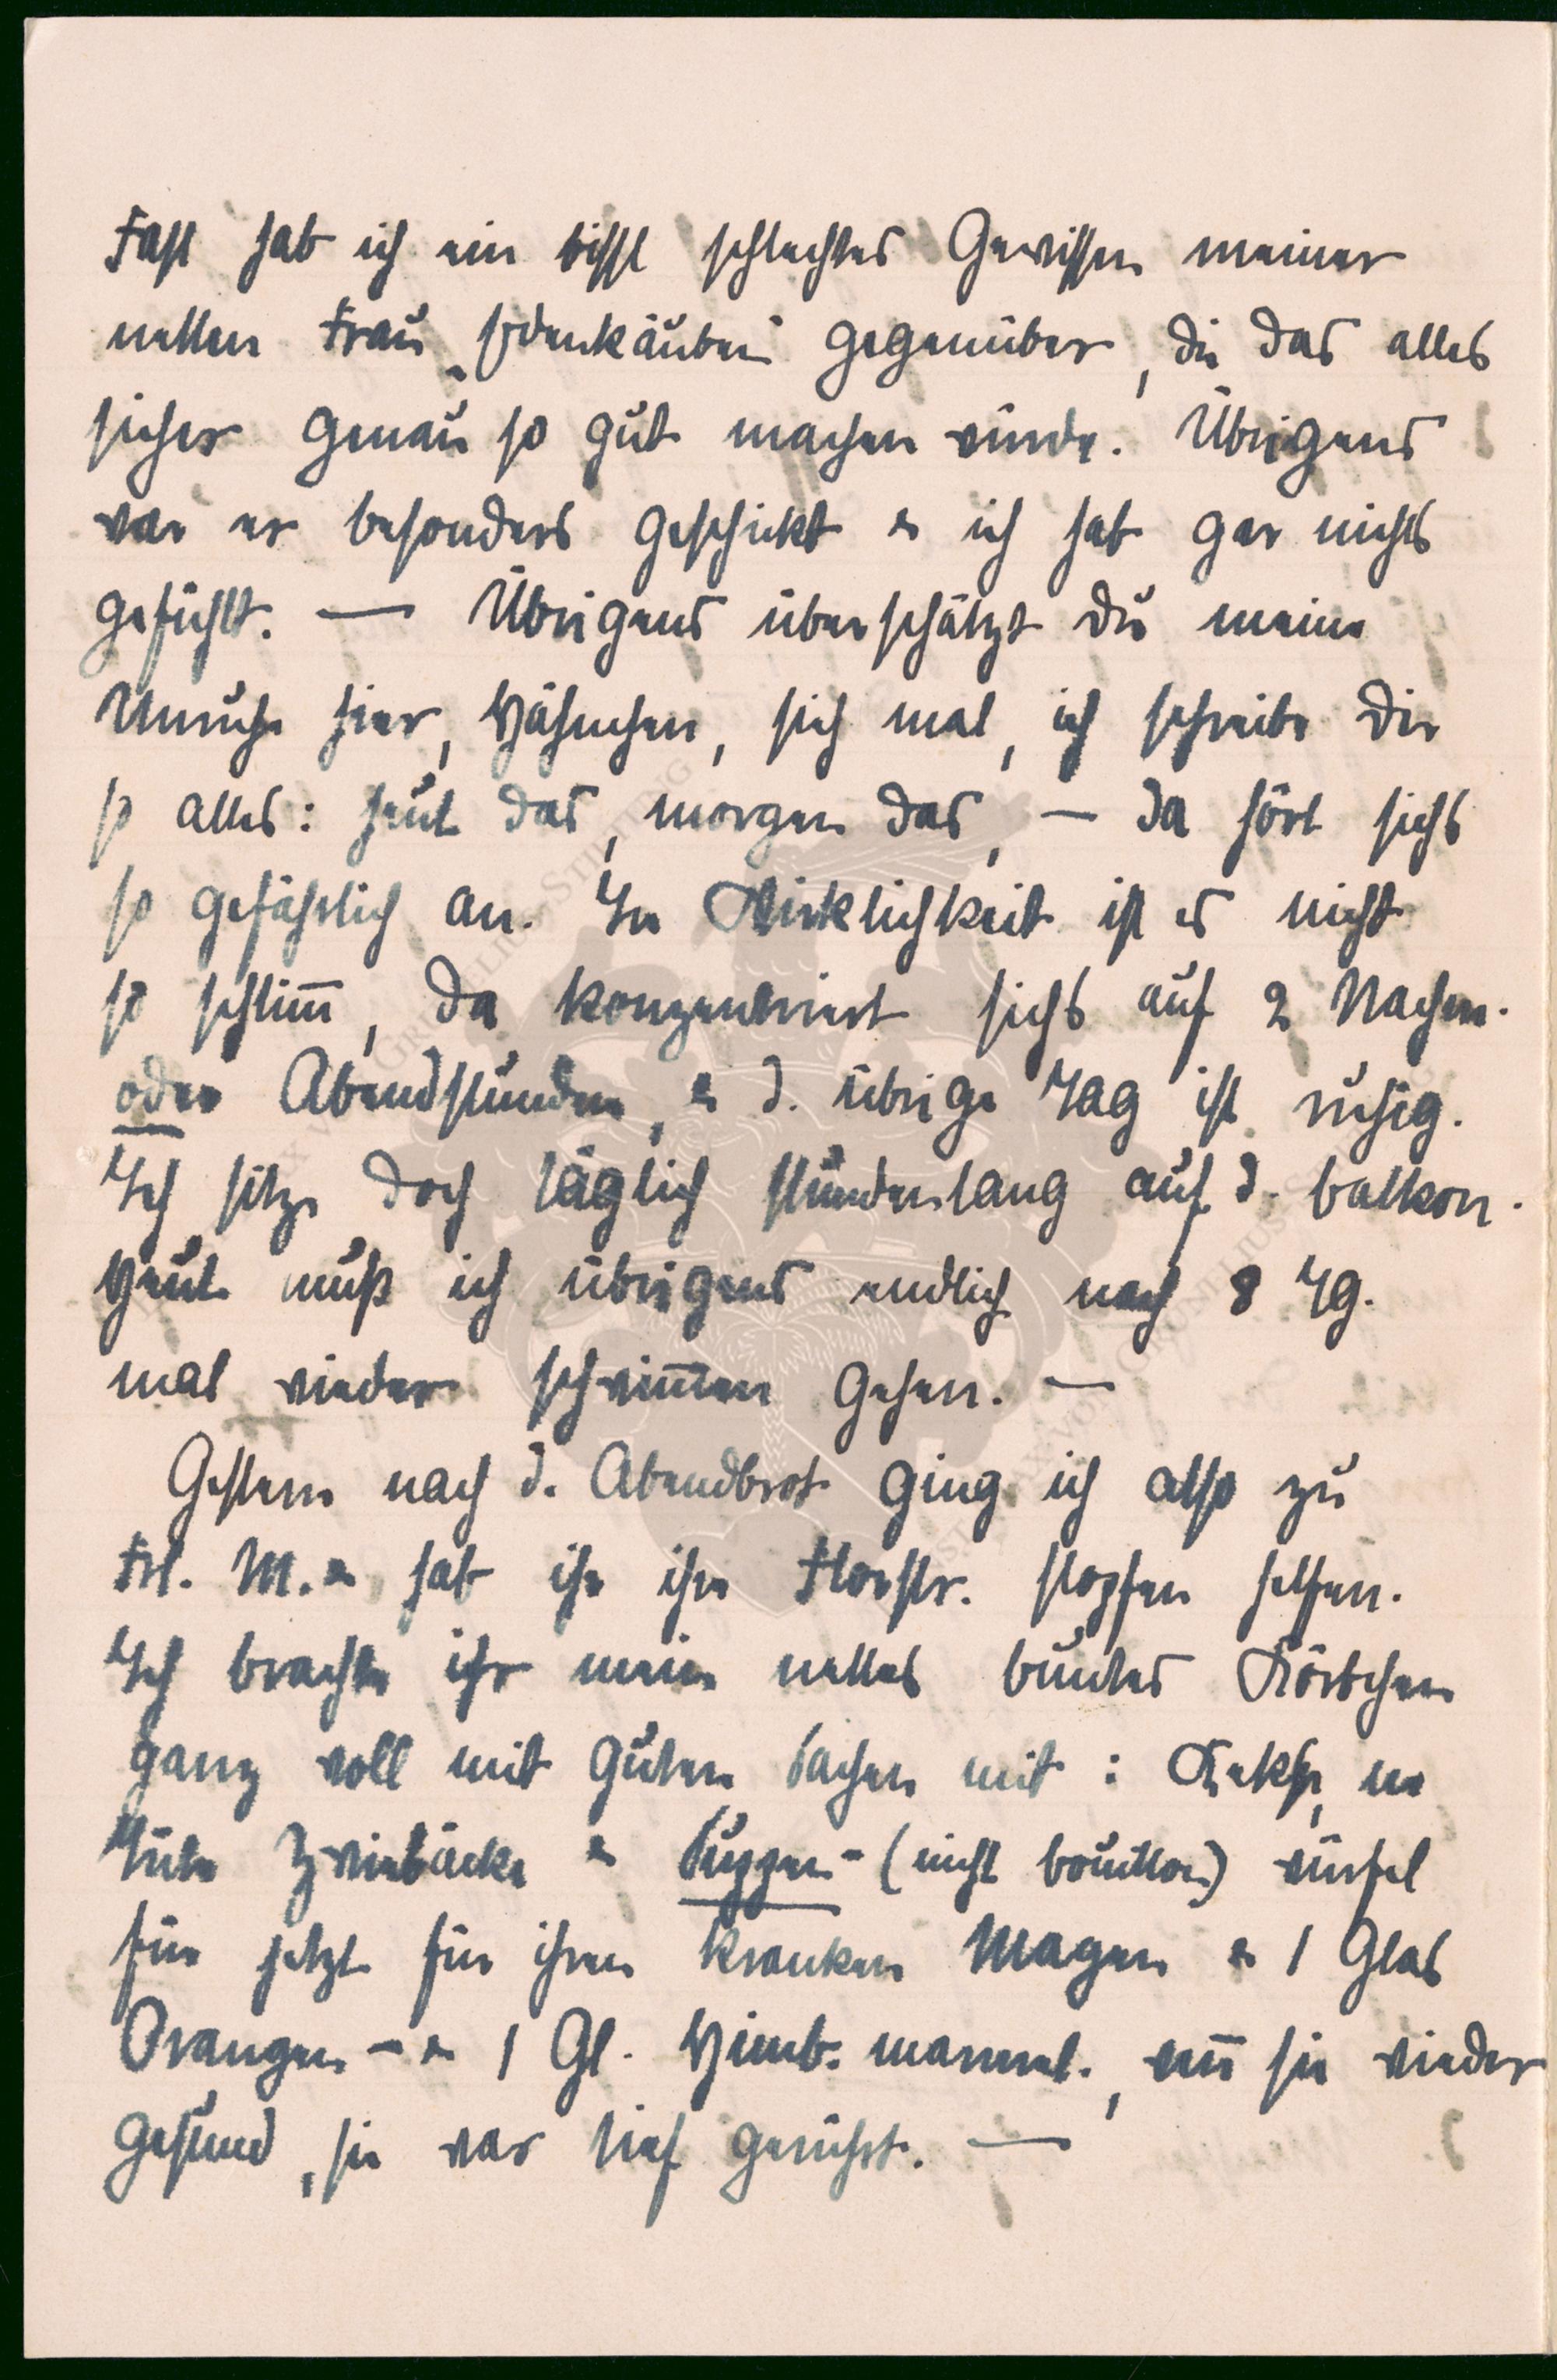 Fast hab ich ein bissl schlechtes Gewissen meiner
netten Frau gegenüber, die das alles
sicher genau so gut machen würde. Übrigens
war er besonders geschickt & ich hab gar nichts
gefühlt. — Übrigens überschätzt Du meine
Unruhe hier, Häschen, sieh mal, ich schreibe Dir
so alles: heut das, morgen das, — da hört sichs
so gefährlich an. In Wirklichkeit ist es nicht
so schlim̅, da konzentriert sichs auf 2 Nachm.
oder Abendstunden, & d. übrige Tag ist ruhig.
Ich sitze doch täglich stundenlang auf d. Balkon.
Heut muß ich übrigens endlich nach 8 Tg.
mal wieder schwim̅en gehen. —
Gestern nach d. Abendbrot ging ich also zu
Frl. M. & hab ihr ihre stopfen helfen.
Ich brachte ihr mein nettes buntes Körbchen
ganz voll mit guten Sachen mit: Kekse, ne
Tüte Zwiebäcke & Suppen- (nicht Bouillon) würfel
für jetzt für ihren kranken Magen & 1 Glas
Orangen- & 1 Gl. Himb. marmel., wen̅ sie wieder
gesund, sie war tief gerührt. —
MAX VON GRUNELIUS-STIFTUNG
MAX VON GRUNELIUS-STIFTUNG